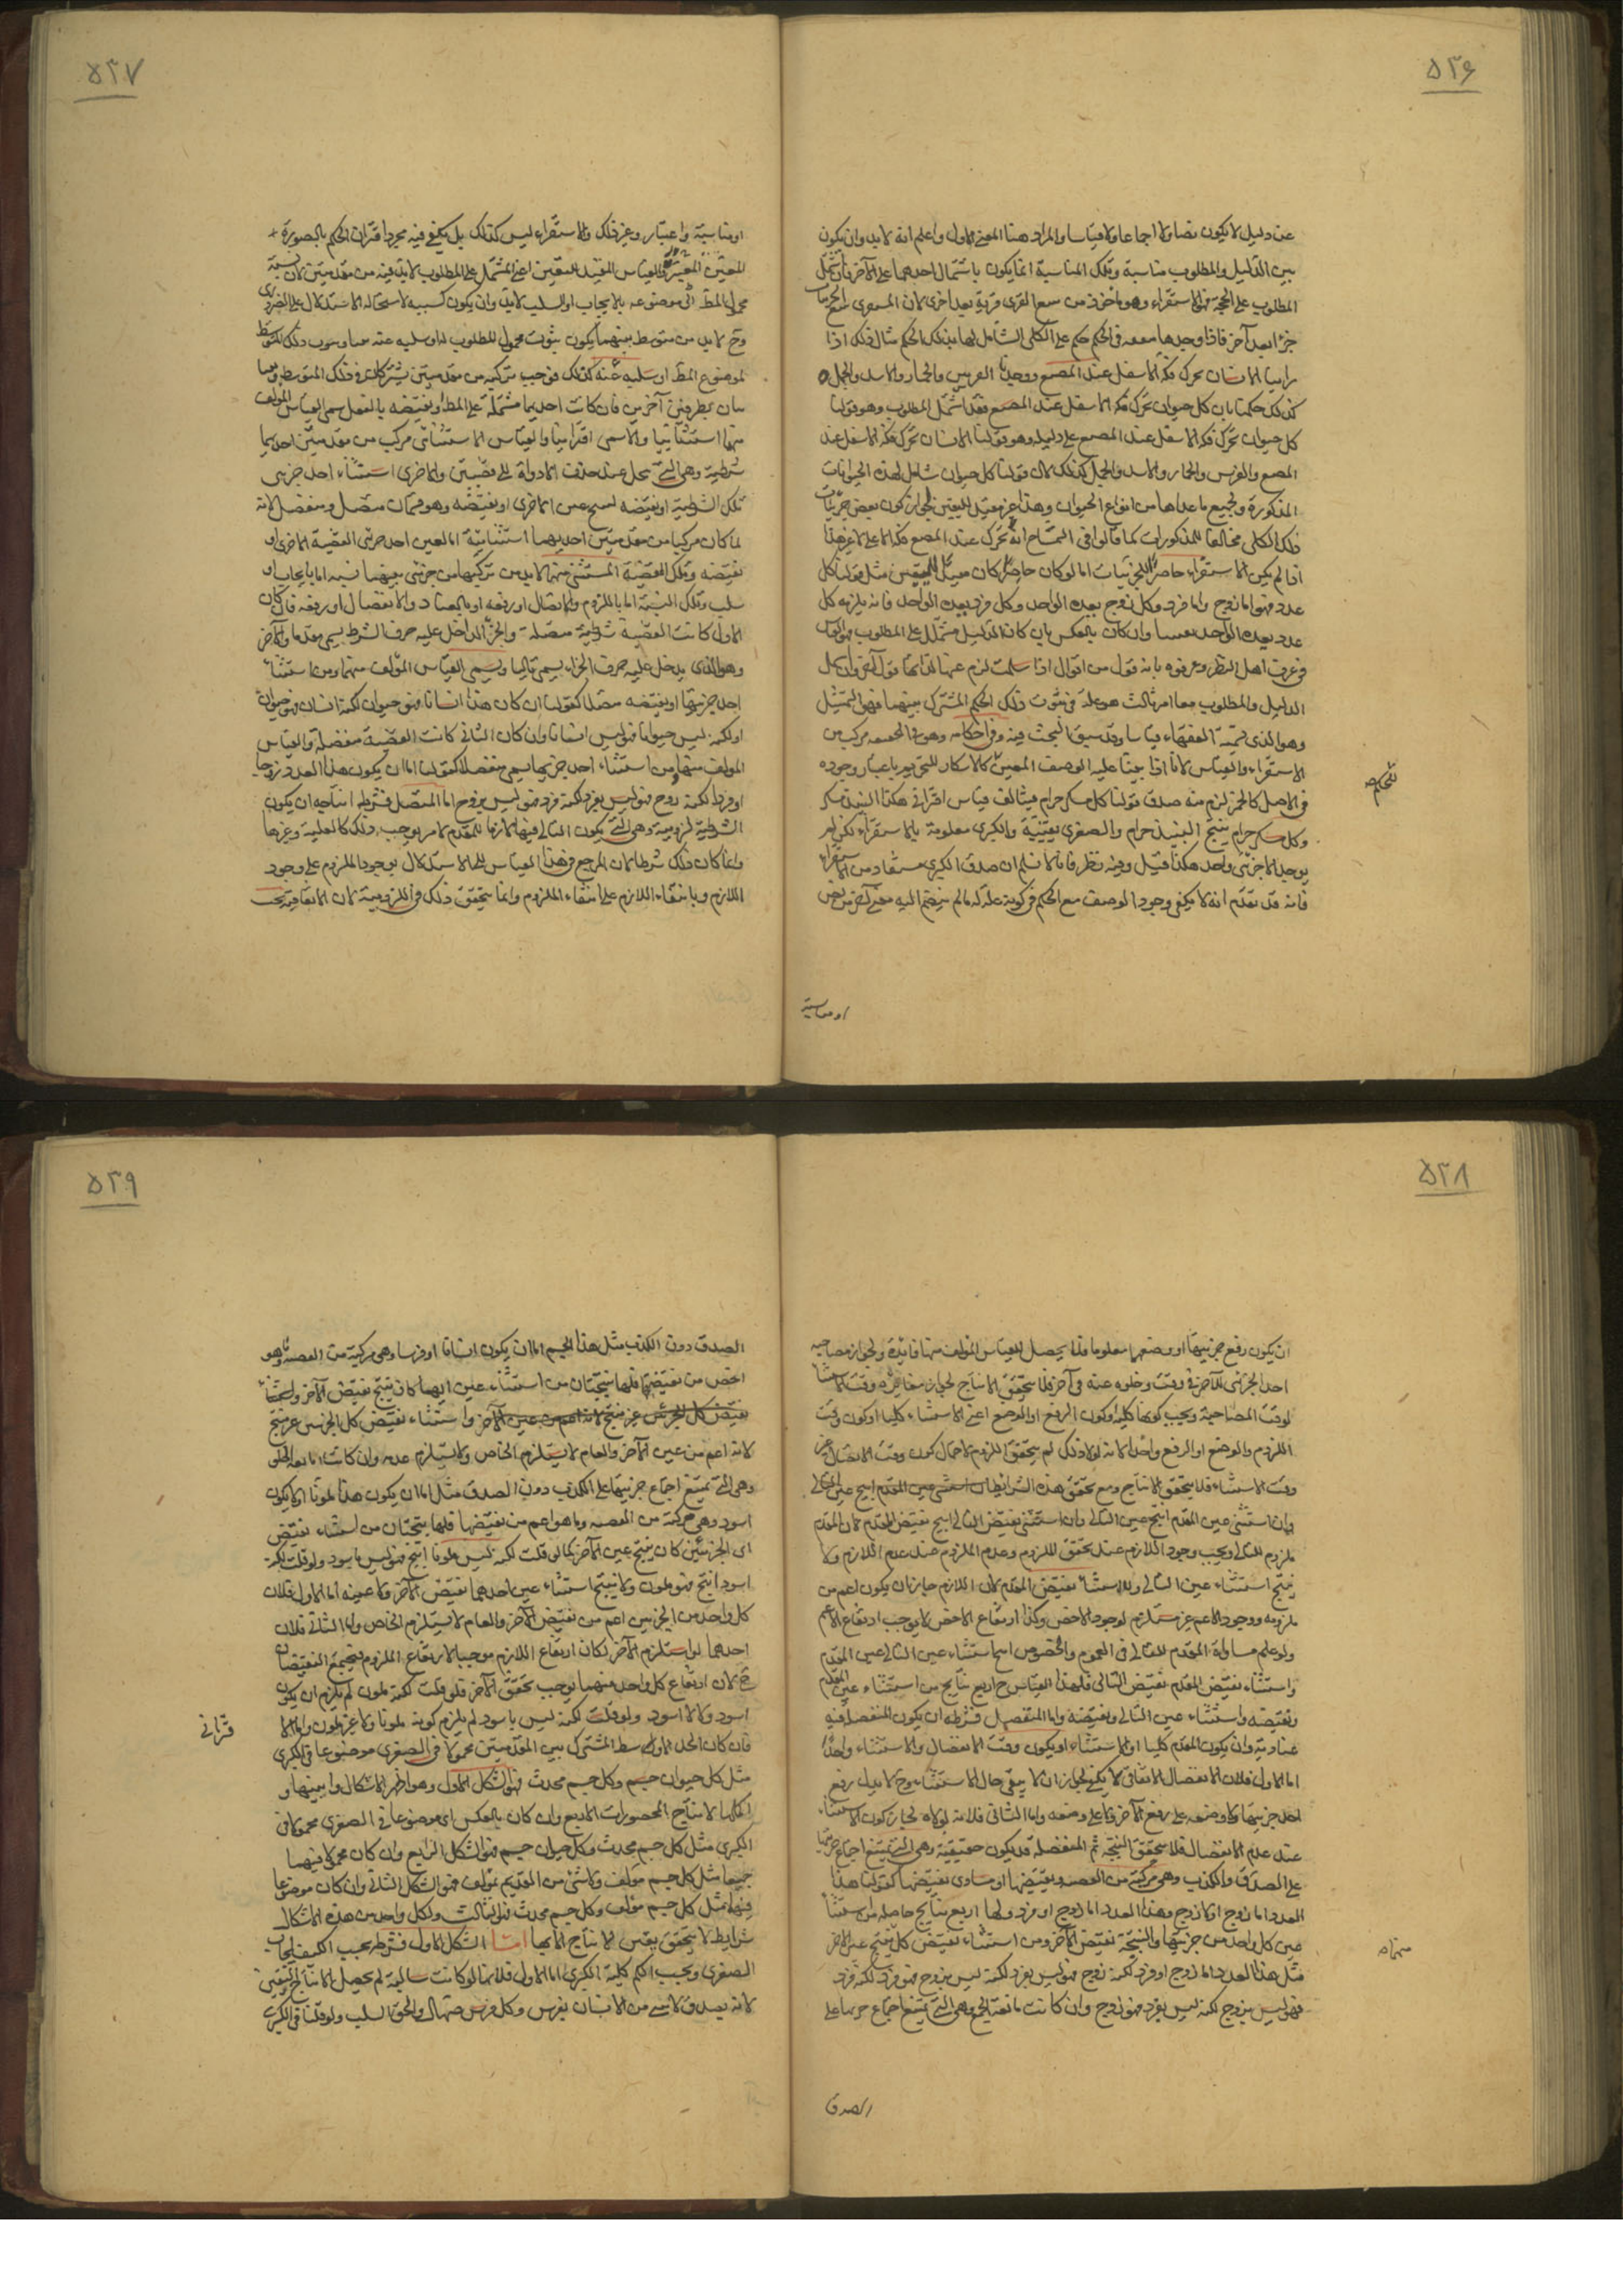 ٥٢٦
عن دليل لا يكون نصا ولا اجماعا ولا قياسا والمراد ههنا المعنى الاول واعلم انه لا بد وان يكون
بين الدليل والمطلوب مناسبة وتلك المناسبة انما يكون باشتمال احدهما على الآخر فان اشتمل
المطلوب على الحجة فهو الاستقراء وهو ماخوذ من القرى قرية بعد اخرى لان المستقرى
جزءا بعد آخر فاذا وجدها في الحكم حكم على الكلى الشامل لها بذلك الحكم مثال ذلك اذا
راينا الانسان يحرك فكه الاسفل عند المضغ ووجدنا الفرس والحمار والاسد والجمل
كذلك حكمنا بان كل حيوان يحرك فكه الاسفل عند المضغ فقد اشتمل المطلوب وهو قولنا
كل حيوان يحرك فكه الاسفل عند المضغ على دليله وهو قولنا الانسان يحرك فكه الاسفل عند
المضغ والفرس والحمار والاسد والجمل كذلك لان قولنا كل حيوان شامل لهذه الحيوانات
المذكورة ولجميع ما عداها من انواع الحيوان وهذا غير مفيد لليقين لجواز كون بعض جزئيات
ذلك الكلى مخالفا للمذكورات كما قالوا في التمساح انه يحرك عند المضغ فكه الاعلى هذا
اذا لم يكن الاستقراء حاصرا للجزئيات اما لو كان حاصرا كان مفيدا لليقين مثل قولنا كل
عدد فهو اما زوج واما فرد وكل زوج يعده الواحد وكل فرد يعده الواحد فانه يلزمه كل
عدد يعده الواحد وان كان بالعكس بان كان الدليل مشتملا على المطلوب فهو القياس
في عرف اهل النظر وعرفوه بانه قول من اقوال اذا سلمت لزم عنها لذاتها قول آخر وان كان
الدليل والمطلوب معا امر ثالث هو علة في ثبوت ذلك الحكم المشترك بينهما فهو التمثيل
وهو الذى تسميه الفقهاء قياسا وقد سبق البحث فيه وفي احكامه وهو في مركب من
الاستقراء والقياس لانا اذا بينا علية الوصف المعين كالاسكار للتحريم باعتبار وجوده
في الاصل كالخمر لزم منه صدق قولنا كل مسكر حرام فيتالف قياس اقترانى هكذا النبيذ مسكر
وكل مسكر حرام ينتج النبيذ حرام والصغرى يقينية والكبرى معلومة بالاستقراء لكن لم
يوجد الا جزئى واحد هكذا قيل وفيه نظر فانا لا نسلم ان صدق الكبرى مستفاد من الاستقراء
فانه قد تقدم انه لا يكفى وجود الوصف مع الحكم في كونه علة له ما لم ينضم اليه معنى آخر من نص
او مناسبة
٥٢٧
او مناسبة واعتبار وغير ذلك والاستقراء ليس كذلك بل يكفى فيه مجرد اقتران الحكم بالصورة
المعين والقياس المفيد لليقين اعنى المشتمل على المطلوب لا بد فيه من مقدمتين لان نسبة
محمول المط الى موضوعه بالايجاب او السلب لا بد وان يكون كسبية لاستحالة الاستدلال على الضرورى
وح لا بد من متوسط بينهما يكون ثبوت محمول المطلوب له او سلبه عنه وثبوت ذلك المتوسط
لموضوع المط او سلبه عنه كذلك فوجب تركيبه من مقدمتين يشتركان في ذلك المتوسط
بطرفين آخرين فان كانت احديهما مشتملة على المط او نقيضه بالفعل سمى القياس المؤلف
منهما استثنائيا والا سمى اقترانيا والقياس الاستثنائى مركب من مقدمتين احديهما
شرطية وهى التى تحل عند حذف الادوات الى قضيتين والاخرى استثناء احد جزئى
تلك الشرطية او نقيضه لينتج عين الاخرى او نقيضه وهو قسمان متصل ومنفصل لانه
لما كان مركبا من مقدمتين احديهما استثنائية اما لعين احد جزئى القضية الاخرى او
نقيضه وتلك القضية المستثنى منها لا بد من تركيبها من جزئين بينهما نسبة اما بايجاب او
سلب وتلك النسبة اما باللزوم والاتصال او رفعه او بالعناد والانفصال او رفعه فان كان
الاول كانت القضية شرطية متصلة والجزء الداخل عليه حرف الشرط يسمى مقدما والآخر
وهو الذى يدخل عليه حرف الجزاء يسمى تاليا ويسمى القياس المؤلف منهما ومن استثناء
احد جزئيها او نقيضه متصلا كقولنا ان كان هذا انسانا فهو حيوان لكنه انسان فهو حيوان
او لكنه ليس حيوانا فهو ليس انسانا وان كان الثانى كانت القضية منفصلة والقياس
المؤلف منها ومن استثناء احد جزئيها يسمى منفصلا كقولنا اما ان يكون هذا العدد زوجا
او فردا لكنه زوج فهو ليس بفرد لكنه فرد فهو ليس بزوج اما المتصل فشرط انتاجه ان يكون
الشرطية لزومية وهى التى يكون التالى فيها لازما للمقدم لامر يوجب ذلك كالعلية وغيرها
وانما كان ذلك شرطا لان المرجع في هذا القياس الى الاستدلال بوجود الملزوم على وجود
اللازم وبانتفاء اللازم على انتفاء الملزوم وانما يتحقق ذلك في اللزومية لان الاتفاقية يجب
٥٢٨
ان يكون رفع جزئيها او وضعهما معلوما فلا يحصل للقياس المؤلف منها فائدة ولجواز مصاحبة
احد الجزئين للآخر في وقت وخلوه عنه في آخر فلا يتحقق الانتاج لجواز مغايرة وقت الاستثناء
لوقت المصاحبة ويجب كونها كلية او كون الرفع او الوضع اعنى الاستثناء كليا او كون وقت
اللزوم والوضع او الرفع واحدا لانه لولا ذلك لم يتحقق اللزوم لاحتمال كون وقت الاتصال غير
وقت الاستثناء فلا يتحقق الانتاج ومع تحقق هذه الشرايط
وان استثنى عين المقدم انتج عين التالى وان استثنى نقيض التالى انتج نقيض المقدم لان المقدم
ملزوم للتالى ويجب وجود اللازم عند تحقق الملزوم وعدم الملزوم عند عدم اللازم ولا
ينتج استثناء عين التالى ولا استثناء نقيض المقدم لان اللازم جايز ان يكون اعم من
ملزومه ووجود الاعم غير مستلزم لوجود الاخص وكذا ارتفاع الاخص لا يوجب ارتفاع الاعم
ولو علم مساواة المقدم للتالى في العموم والخصوص انتج استثناء عين التالى عين المقدم
واستثناء نقيض المقدم نقيض التالى فلهذا القياس ح اربع نتايج من استثناء عين المقدم
ونقيضه واستثناء عين التالى ونقيضه واما المنفصل فشرطه ان يكون المنفصلة فيه
عنادية وان يكون المقدم كليا او الاستثناء او يكون وقت الانفصال والاستثناء واحدا
اما الاول فلان الانفصال الاتفاقى لا يكفى لجواز ان لا يبقى حال الاستثناء وح لا يدل رفع
احد جزئيها ولا وضعه على رفع الآخر ولا على وضعه واما الثانى فلانه لولاه لجاز كون الاستثناء
عند عدم الانفصال فلا يتحقق النتيجة ثم المنفصلة قد يكون حقيقية وهى التى يمتنع اجتماع جزئيها
على الصدق والكذب وهى مركبة من القضية ونقيضها او مساوى نقيضها كقولنا هذا
العدد اما زوج او لا زوج وهذا العدد اما زوج او فرد ولها اربع نتايج حاصلة من استثناء
عين كل واحد من جزئيها والنتيجة نقيض الآخر ومن استثناء نقيض كل ينتج عين الآخر
مثل هذا العدد اما زوج او فرد لكنه زوج فهو ليس بفرد لكنه ليس بزوج فهو فرد لكنه فرد
فهو ليس بزوج لكنه ليس بفرد فهو زوج وان كانت مانعة الجمع وهى التى يمتنع اجتماع جزئيها على
الصدق
٥٢٩
الصدق دون الكذب مثل هذا الجسم اما ان يكون انسانا او فرسا وهى مركبة من القضية وما هو
اخص من نقيضها فلها نتيجتان من استثناء عين ايهما كان ينتج نقيض الآخر
واستثناء نقيض كل الجزئين غير منتج
لانه اعم من عين الآخر والعام لا يستلزم الخاص ولا يستلزم عدمه وان كانت مانعة الخلو
وهى التى يمتنع اجتماع جزئيها على الكذب دون الصدق مثل اما ان يكون هذا ملونا او لا يكون
اسود وهى مركبة من القضية وما هو اعم من نقيضها فلها نتيجتان من استثناء نقيض
اى الجزئين كان ينتج عين الآخر كما لو قلت لكنه ليس ملونا انتج فهو ليس باسود ولو قلت لكنه
اسود انتج فهو ملون ولا ينتج استثناء عين احدهما نقيض الآخر ولا عينه اما الاول فلان
كل واحد من الجزئين اعم من نقيض الآخر والعام لا يستلزم الخاص واما الثانى فلان
احدهما لو استلزم الآخر لكان ارتفاع اللازم موجبا لارتفاع الملزوم فيجتمع النقيضان
ح لان ارتفاع كل واحد منهما يوجب تحقق الآخر فلو قلت لكنه ملون لم يلزم ان يكون
اسود ولا لا اسود ولو قلت لكنه ليس باسود لم يلزم كونه ملونا ولا غير ملون واما الاقترانى
فان كان الحد الاوسط المشترك بين المقدمتين محمولا في الصغرى موضوعا في الكبرى
مثل كل حيوان جسم وكل جسم محدث فهو الشكل الاول وهو اظهر الاشكال وابينها و
اكملها لانتاجه المحصورات الاربع وان كان بالعكس اى موضوعا في الصغرى محمولا في
الكبرى مثل كل جسم محدث وكل حيوان جسم فهو الشكل الرابع وان كان محمولا فيهما
جميعا مثل كل جسم مؤلف ولا شئ من القديم بمؤلف فهو الشكل الثانى وان كان موضوعا
فيهما مثل كل جسم مؤلف وكل جسم محدث فهو الثالث ولكل واحد من هذه الاشكال
شرايط لا يتحقق يقين الانتاج الا بها اما الشكل الاول فشرطه بحسب الكيف ايجاب
الصغرى وبحسب الكم كلية الكبرى اما الاول فلانها لو كانت سالبة لم يحصل الانتاج اليقينى
لانه يصدق لا شئ من الانسان بفرس وكل فرس صهال والحق السلب ولو قلنا في الكبرى